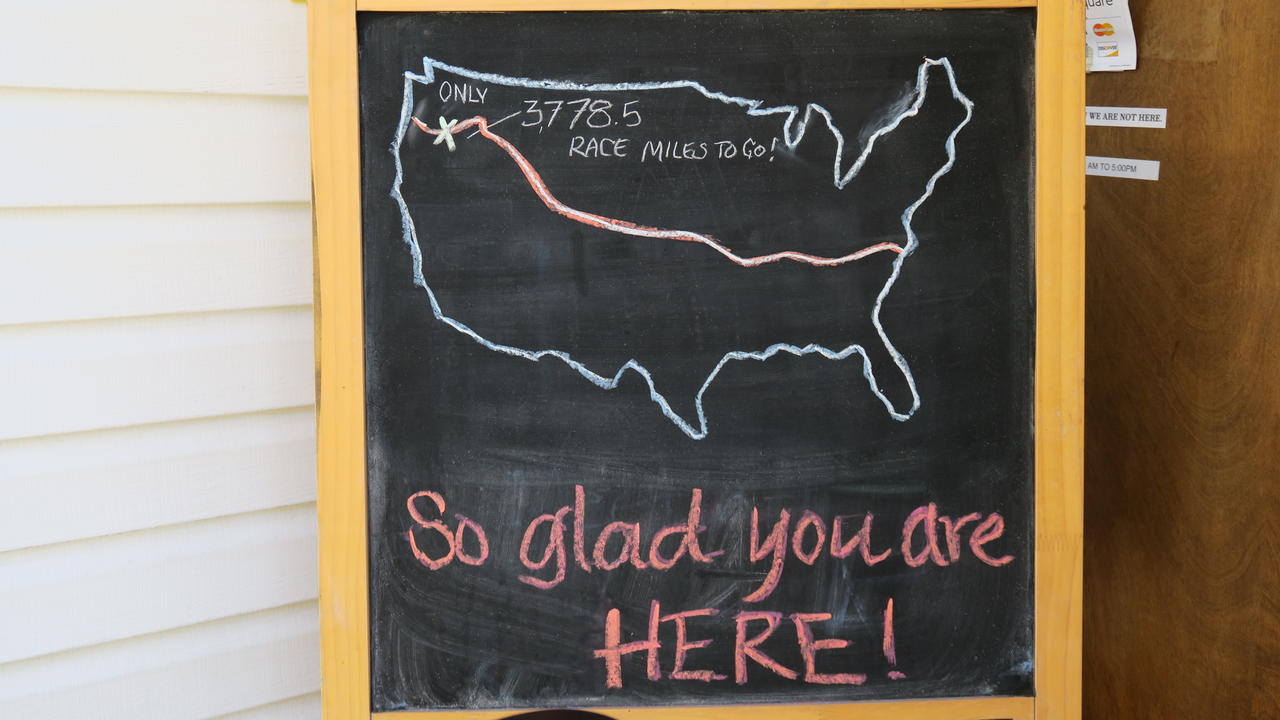 ONLY
3,778.5
RACE MILES TO GO!
So glad you are
HERE!
WE ARE NOT HERE.
AM TO 5:00PM
DISCOVER